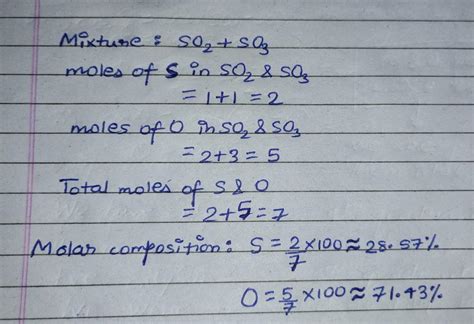 Mixture : SO₂ + SO₃
moles of S in SO₂ & SO₃
= 1+1 = 2
moles of O in SO₂ & SO₃
= 2+3 = 5
Total moles of S & O
= 2+5 = 7
Molar composition: S = 2/7 × 100 ≈ 28.57%
O = 5/7 × 100 ≈ 71.43%